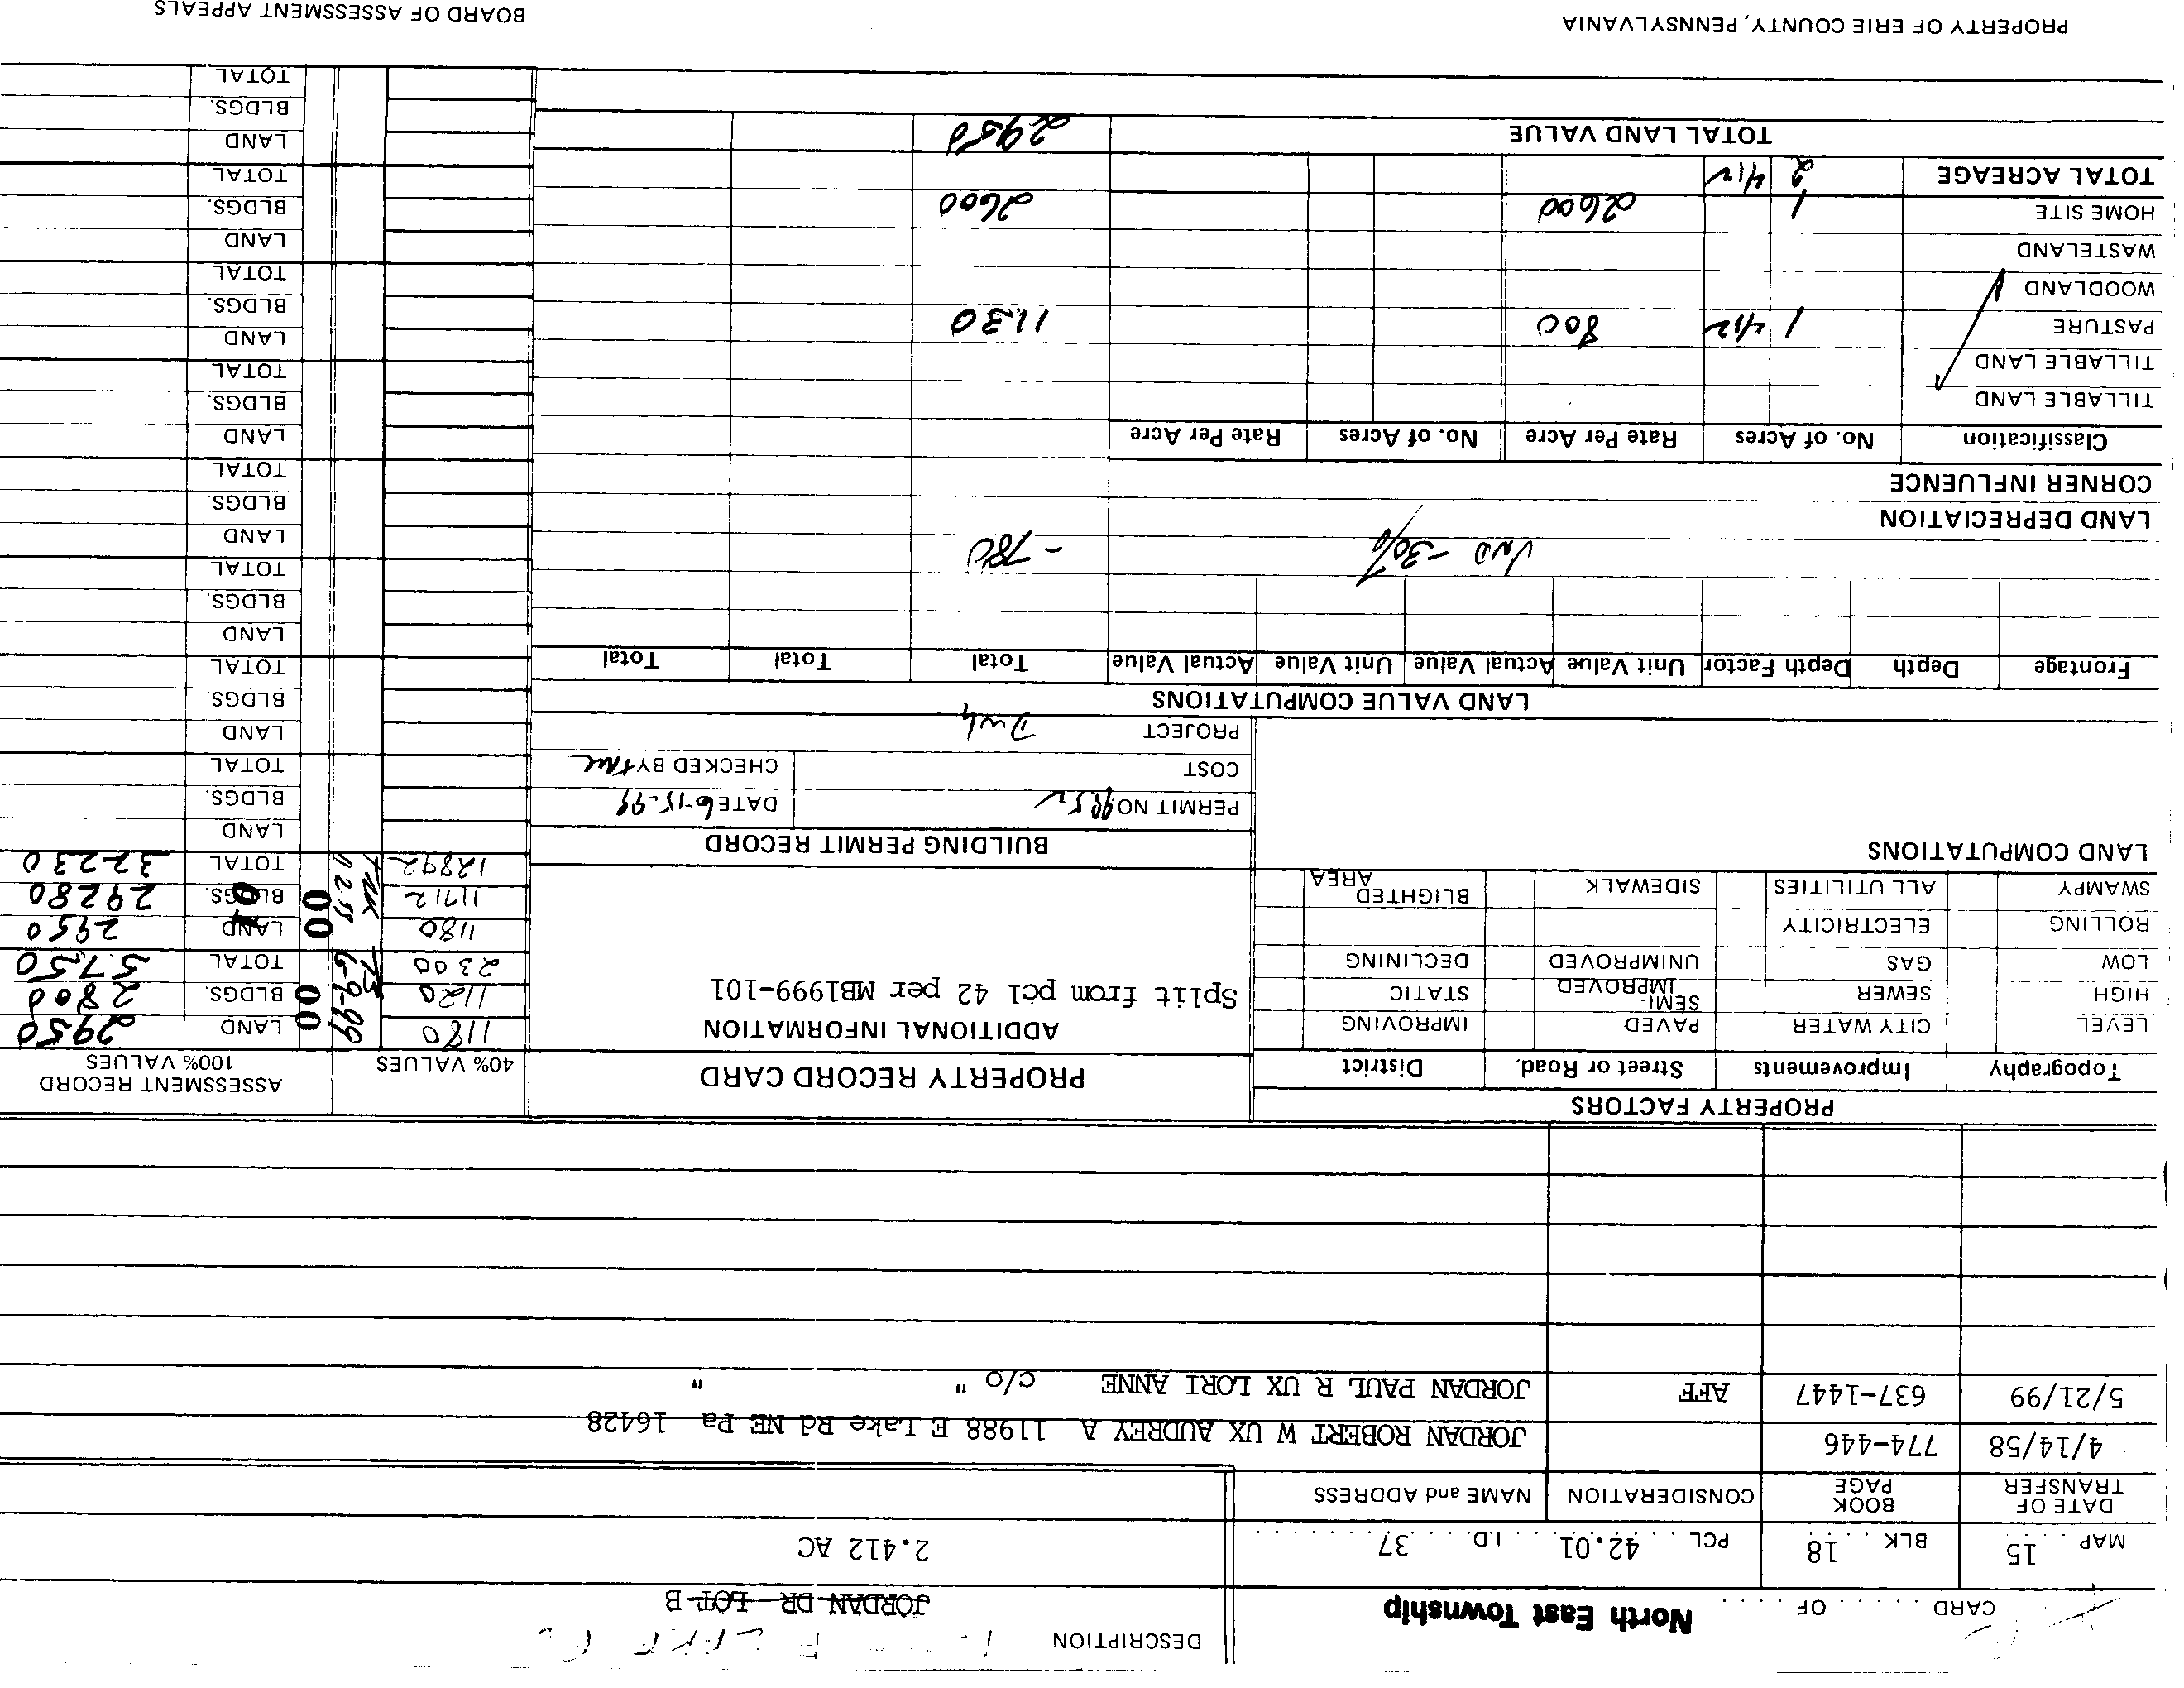 DESCRIPTION
CARD OF
North East Township
JORDAN DR LOT B
MAP 15 BLK 18 PCL 42.01 I.D. 37
2.412 AC
DATE OF TRANSFER BOOK PAGE CONSIDERATION NAME and ADDRESS
4/14/58 774-446 JORDAN ROBERT W UX AUDREY A 11988 E Lake Rd NE Pa 16428
5/21/99 637-1447 AFF JORDAN PAUL R UX LORI ANNE c/o " "
PROPERTY FACTORS
PROPERTY RECORD CARD
40% VALUES
ASSESSMENT RECORD
100% VALUES
Topography Improvements Street or Road. District
LEVEL CITY WATER PAVED IMPROVING
HIGH SEWER SEMI-IMPROVED STATIC
LOW GAS UNIMPROVED DECLINING
ROLLING ELECTRICITY
SWAMPY ALL UTILITIES SIDEWALK BLIGHTED AREA
LAND COMPUTATIONS
ADDITIONAL INFORMATION
Split from pcl 42 per MB1999-101
1180 00 LAND 2950
1120 00 BLDGS. 2800
2300 6-9-99 TOTAL 5750
1180 00 LAND 2950
11712 00 BLDGS. 29280
12892 TOTAL 32230
BUILDING PERMIT RECORD
PERMIT NO DATE 6-15-99
COST CHECKED BY
PROJECT
LAND
BLDGS.
TOTAL
LAND
BLDGS.
TOTAL
LAND
BLDGS.
TOTAL
LAND
BLDGS.
TOTAL
LAND
BLDGS.
TOTAL
LAND
BLDGS.
TOTAL
LAND
BLDGS.
TOTAL
LAND
BLDGS.
TOTAL
LAND VALUE COMPUTATIONS
Frontage Depth Depth Factor Unit Value Actual Value Unit Value Actual Value Total Total Total
UND -30% -780
LAND DEPRECIATION
CORNER INFLUENCE
Classification No. of Acres Rate Per Acre No. of Acres Rate Per Acre
TILLABLE LAND
TILLABLE LAND
PASTURE 1 412 800 1130
WOODLAND
WASTELAND
HOME SITE 1 2600 2600
TOTAL ACREAGE 2 412
TOTAL LAND VALUE 2950
PROPERTY OF ERIE COUNTY, PENNSYLVANIA
BOARD OF ASSESSMENT APPEALS